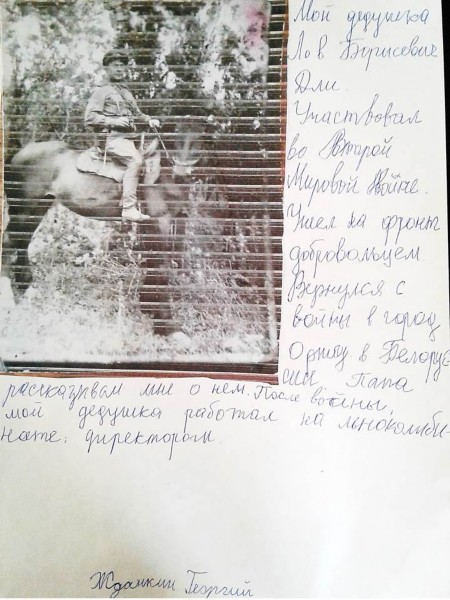 Мой дедушка
Лов Борисович
Дли.
Участвовал
во Второй
Мировой Войне.
Ушел на фронт
добровольцем
Вернулся с
войны в город
Оршу в Белорус-
сии Папа
рассказывал мне о нем. После войны,
мой дедушка работал на льнокомби-
нате. директором.
Жданкин Георгий